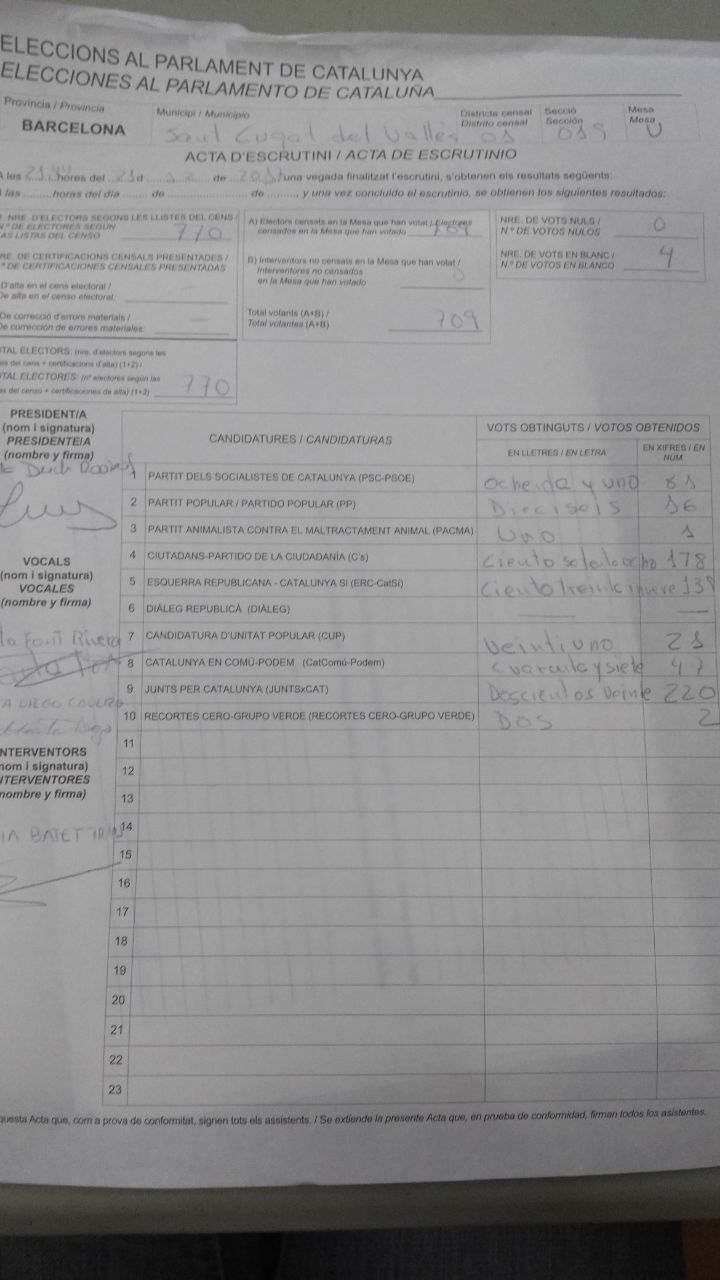 ELECCIONS AL PARLAMENT DE CATALUNYA
ELECCIONES AL PARLAMENTO DE CATALUÑA
Província / Provincia
Municipi / Municipio
Districte censal
Distrito censal
Secció
Sección
Mesa
Mesa
BARCELONA
Sant Cugat del Vallès 01 019 U
ACTA D'ESCRUTINI / ACTA DE ESCRUTINIO
A les hores del d de una vegada finalitzat l'escrutini, s'obtenen els resultats següents:
A las horas del día de de , y una vez concluido el escrutinio, se obtienen los siguientes resultados:
NRE. D'ELECTORS SEGONS LES LLISTES DEL CENS /
N.º DE ELECTORES SEGÚN
LAS LISTAS DEL CENSO
770
RE. DE CERTIFICACIONS CENSALS PRESENTADES /
º DE CERTIFICACIONES CENSALES PRESENTADAS
D'alta en el cens electoral /
De alta en el censo electoral:
De correcció d'errors materials /
De corrección de errores materiales:
TAL ELECTORS: (nre. d'electors segons les
es del cens + certificacions d'alta) (1+2) /
TAL ELECTORES: (nº electores según las
as del censo + certificaciones de alta) (1+2)
770
A) Electors censats en la Mesa que han votat / Electores
censados en la Mesa que han votado 709
B) Interventors no censats en la Mesa que han votat /
Interventores no censados
en la Mesa que han votado
0
Total votants (A+B) /
Total votantes (A+B)
709
NRE. DE VOTS NULS /
N.º DE VOTOS NULOS
0
NRE. DE VOTS EN BLANC /
N.º DE VOTOS EN BLANCO
4
PRESIDENT/A
(nom i signatura)
PRESIDENTE/A
(nombre y firma)
VOCALS
(nom i signatura)
VOCALES
(nombre y firma)
Font Rivera
DIEGO
INTERVENTORS
nom i signatura)
INTERVENTORES
nombre y firma)
CANDIDATURES / CANDIDATURAS
VOTS OBTINGUTS / VOTOS OBTENIDOS
EN LLETRES / EN LETRA
EN XIFRES / EN
NÚM
1 PARTIT DELS SOCIALISTES DE CATALUNYA (PSC-PSOE) Ochenta y uno 81
2 PARTIT POPULAR / PARTIDO POPULAR (PP) Dieciseis 16
3 PARTIT ANIMALISTA CONTRA EL MALTRACTAMENT ANIMAL (PACMA) Uno 1
4 CIUTADANS-PARTIDO DE LA CIUDADANÍA (C's) Ciento setentaocho 178
5 ESQUERRA REPUBLICANA - CATALUNYA SÍ (ERC-CatSí) Ciento treintainueve 139
6 DIÀLEG REPUBLICÀ (DIÀLEG)
7 CANDIDATURA D'UNITAT POPULAR (CUP) Veintiuno 21
8 CATALUNYA EN COMÚ-PODEM (CatComú-Podem) Cuarenta y siete 47
9 JUNTS PER CATALUNYA (JUNTSxCAT) Doscientos veinte 220
10 RECORTES CERO-GRUPO VERDE (RECORTES CERO-GRUPO VERDE) DOS 2
11
12
13
14
15
16
17
18
19
20
21
22
23
questa Acta que, com a prova de conformitat, signen tots els assistents. / Se extiende la presente Acta que, en prueba de conformidad, firman todos los asistentes.